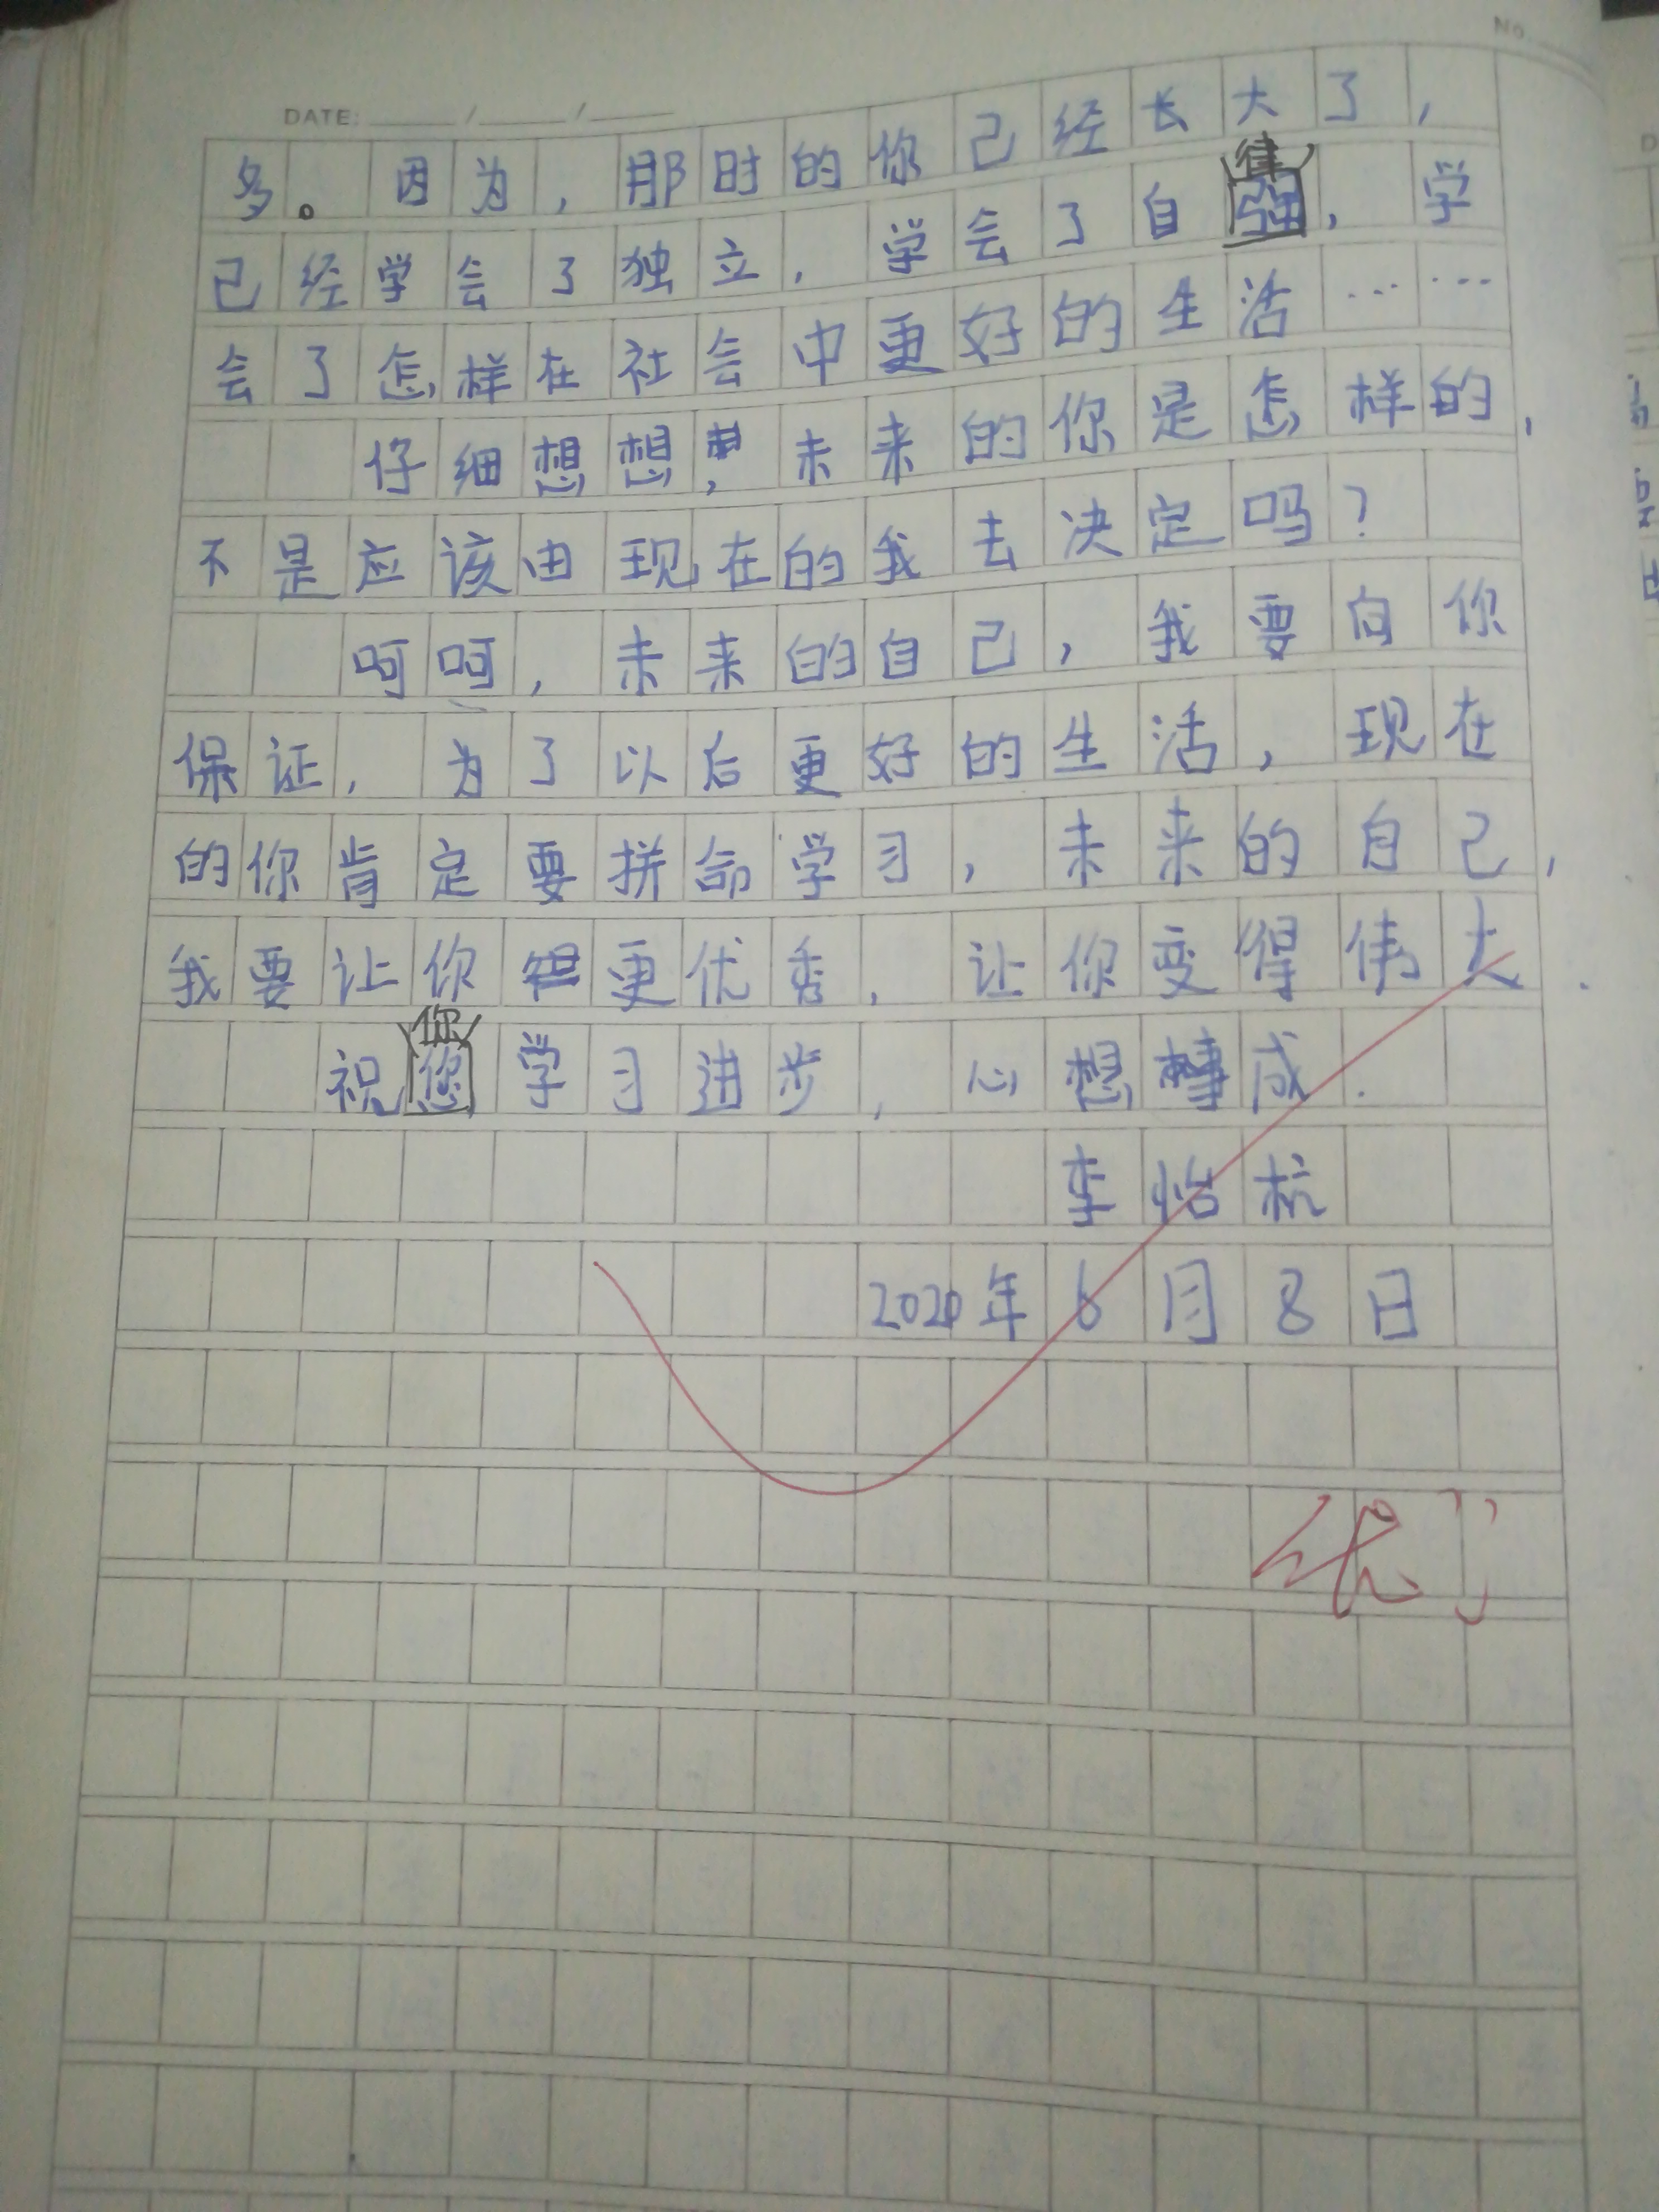 No.
DATE: / /
多。因为，那时的你己经长大了，
律
己经学会了独立，学会了自强，学
会了怎样在社会中更好的生活……
仔细想想，未来的你是怎样的，
不是应该由现在的我去决定吗？
呵呵，未来的自己，我要向你
保证，为了以后更好的生活，现在
的你肯定要拼命学习，未来的自己，
我要让你更优秀，让你变得伟大.
你
祝您学习进步，心想事成.
李怡杭
2020年6月8日
优